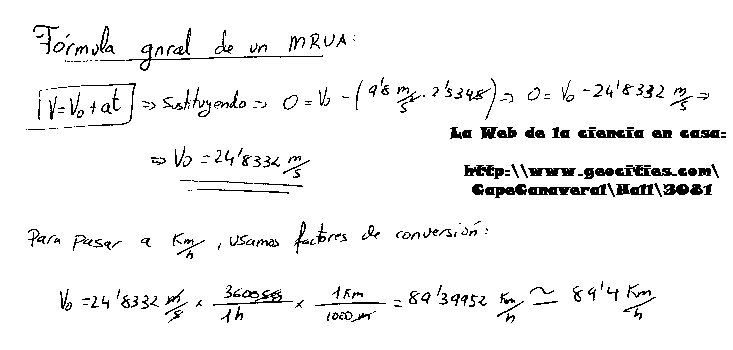 Fórmula gnral de un MRUA:
V=V₀+at => Sustituyendo => 0= V₀ - (9'8 m/s · 2'534s) => 0= V₀ - 24'8332 m/s =>
La Web de la ciencia en casa:
=> V₀ = 24'8332 m/s
http:\\www.geocities.com\
CapeCanaveral\Hall\3081
Para pasar a Km/h, usamos factores de conversión:
V₀ = 24'8332 m/s × 3600s/1h × 1Km/1000m = 89'39952 Km/h ≃ 89'4 Km/h